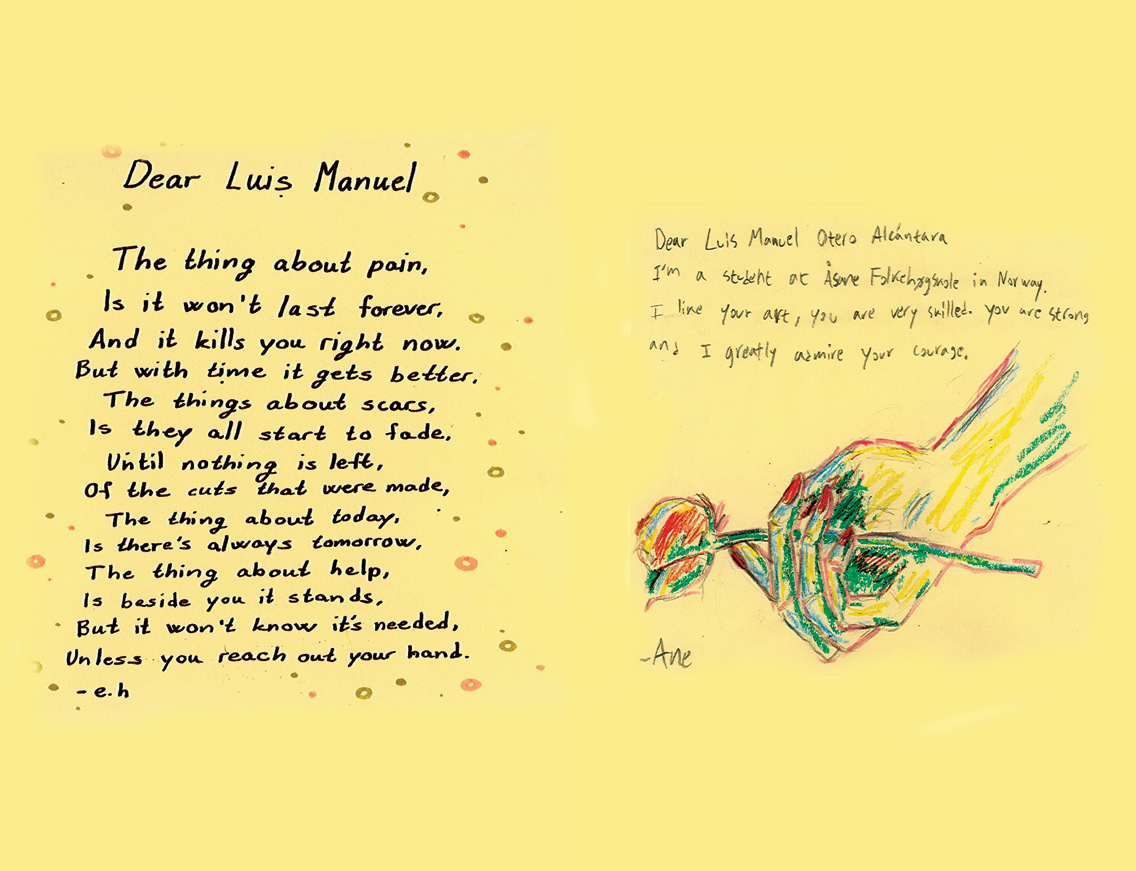 Dear Luis Manuel
The thing about pain,
Is it won't last forever,
And it kills you right now.
But with time it gets better.
The things about scars,
Is they all start to fade,
Until nothing is left,
Of the cuts that were made,
The thing about today,
Is there's always tomorrow,
The thing about help,
Is beside you it stands,
But it won't know it's needed,
Unless you reach out your hand.
- e.h
Dear Luis Manuel Otero Alcántara
I'm a student at Åsane Folkehøgskole in Norway.
I like your art, you are very skilled. you are strong
and I greatly admire your courage.
-Ane